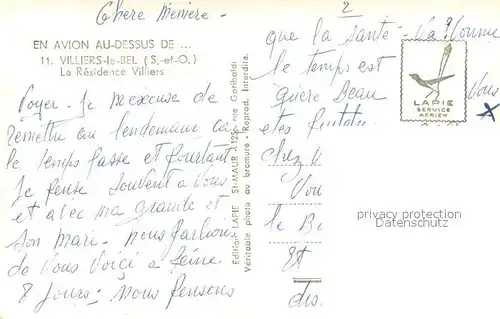 Chère Mémère -
EN AVION AU-DESSUS DE ...
11. VILLIERS-le-BEL (S.-et-O.)
La Résidence Villiers
Voyer. Je m'excuse de
remettre au lendemain car
le temps passe et pourtant
Je pense souvent a Vous
et avec ma grande et
son mari - nous parlons
de Vous Voiçi a peine
8 Jours: nous pensons
Edition LAPIE ST-MAUR - 125, rue Garibaldi
Véritable photo au bromure - Reprod. Interdite.
2
que la santé - Va! Comme
le temps est
guère beau Vous
etes
chez V
Vou
le B
et
dis
LAPIE
SERVICE
AERIEN
privacy protection
Datenschutz